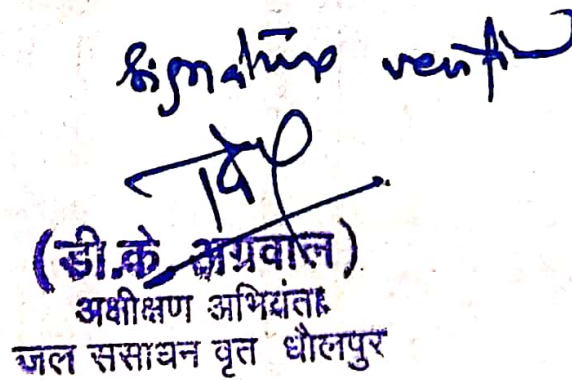 Signature verifi
(डी.के. अग्रवाल)
अधीक्षण अभियंता
जल संसाधन वृत धौलपुर